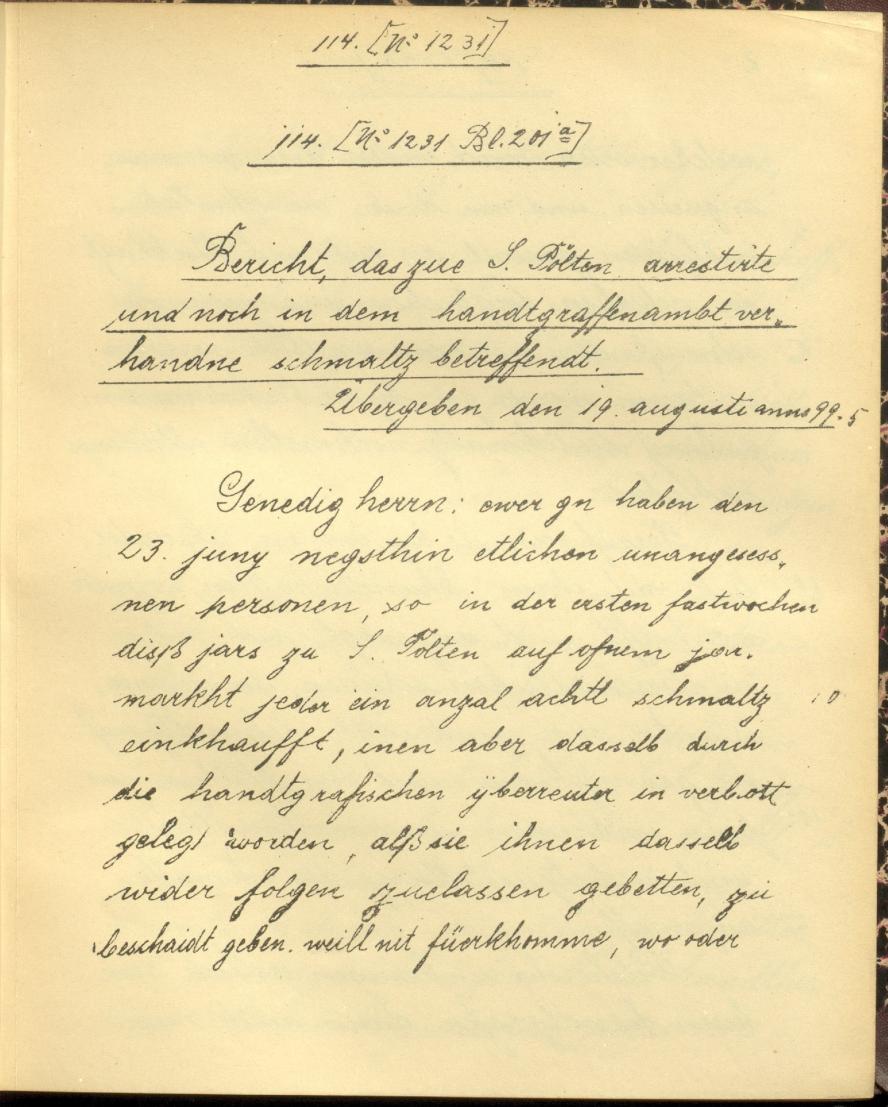 114. [No 1231]
114. [No 1231 Bl. 201a]
Bericht, das zue S. Pölten arrestirte
und noch in dem handtgraffenambt ver„
handne schmaltz betreffendt.
Übergeben den 19. augusti anno 99. 5
Genedig herrn: ewer gn haben den
23. juny negsthin etlichen unangesess„
nen personen, so in der ersten fastwochen
diß jars zu S. Pölten auf ofnem jar.
markht jeder ein anzal achtl schmaltz 10
einkhaufft, inen aber dasselb durch
die handtgrafischen ÿberreuter in verbott
gelegt worden, alß sie ihnen dasselb
wider folgen zuelassen gebetten, zu
beschaidt geben. weill nit füerkhomme, wo oder